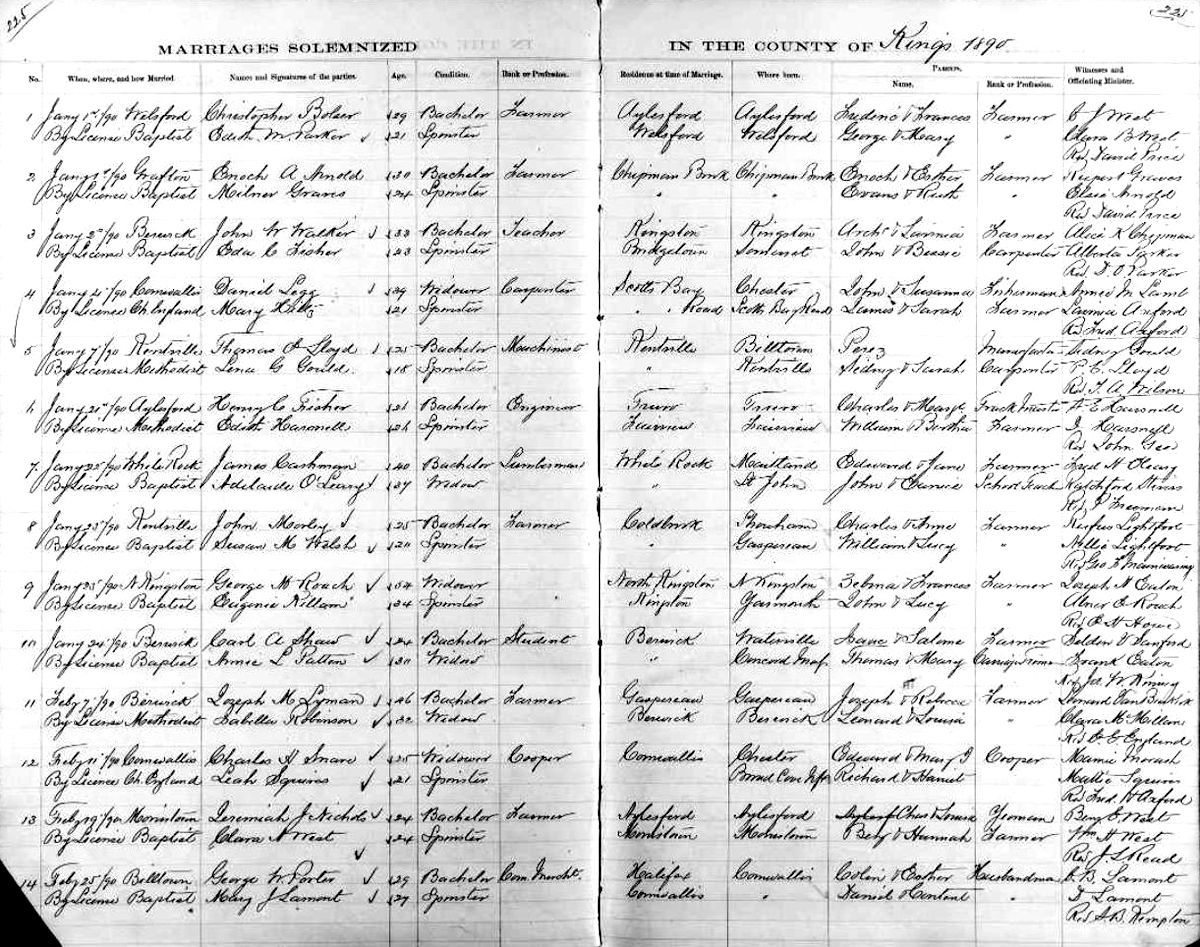 225 225
MARRIAGES SOLEMNIZED IN THE COUNTY OF Kings 1890
No. When, where, and how Married Names and Signatures of the parties. Age. Condition. Rank or Profession. Residence at time of Marriage. Where born. PARENTS. Name. Rank or Profession. Witnesses and Officiating Minister.
1 Jany 1st/90 Welsford Christopher Bolser 29 Bachelor Farmer Aylesford Aylesford Frederic & Frances Farmer C J West
By License Baptist Edith M. Parker 21 Spinster Welsford Welsford George & Mary " Clara B West
Rev David Price
2 Jany 1st/90 Grafton Enoch A Arnold 30 Bachelor Farmer Chipman Brook Chipman Brook Enoch & Esther Farmer Rupert Graves
By Licence Baptist Milner Graves 24 Spinster " " Evans & Ruth " Elsie Arnold
Rev David Price
3 Jany 2nd/90 Berwick John W Walker 33 Bachelor Teacher Kingston Kingston Archd & Lavinia Farmer Alice K Chipman
By License Baptist Eda C Fisher 23 Spinster Bridgetown Somerset John & Bessie Carpenter Alberta Parker
Rev. D. O. Parker
4 Jany 4/90 Cornwallis Daniel Legg 29 Widower Carpenter Scotts Bay Chester John & Susanna Fisherman Annie M Lamb
By License Ch England Mary 21 Spinster " " Road Scotts Bay Road James & Sarah Farmer Lavinia Axford
Rev Fred Axford
5 Jany 7/90 Kentville Thomas A Lloyd 25 Bachelor Machinist Kentville Billtown Perez Sidney Gould
By License Methodist Lena G Gould. 18 Spinster " Kentville Sidney & Sarah Carpenter P. E. Lloyd
Rev. F. A. Wilson
6 Jany 21st/90 Aylesford Henry C Fisher 26 Bachelor Engineer Truro Truro Charles & Mary Truck Master
By License Methodist Edith Harsnell 26 Spinster Fairview Fairview William & Bertha Farmer J Harsnell
Rev John Gee
7 Jany 25/90 White Rock James Cashman 40 Bachelor Lumberman White Rock Maitland Edward & Jane Farmer Fred N Oleary
By License Baptist Adelaide O'Leary 37 Widow " St John John & Eunice School Teach Ratchford Stevens
Rev J Freeman
8 Jany 23/90 Kentville John Morley 25 Bachelor Farmer Coldbrook Charles & Anne Farmer Rufus Lightfoot
By License Baptist Susan M Walsh 20 Spinster " Gasperean William & Lucy " Nellie Lightfoot
Rev Geo
9 Jany 23/90 N Kingston George M Roach 54 Widower North Kingston N Kingston Zebina & Frances Farmer Joseph H Eaton
By License Baptist Eugenie Killam 34 Spinster Kingston Yarmouth John & Lucy " Abner E Roach
Rev E H Howe
10 Jany 24/90 Berwick Carl A Shaw 24 Bachelor Student Berwick Waterville Isaac & Salome Farmer Selden V Sanford
By License Baptist Annie L Patton 30 Widow " Concord Mass Thomas & Mary Frank Eaton
Rev Jos. W.
11 Feby 7/90 Berwick Joseph M Lyman 46 Bachelor Farmer Gasperean Gasperean Joseph & Rebecca Farmer Leonard Van Buskirk
By License Methodist Isabella Robinson 32 Widow Berwick Berwick Leonard & Louisa " Clara McMillan
Rev. E. E. England
12 Feby 11/90 Cornwallis Charles H Smare 25 Widower Cooper Cornwallis Chester Edward & Mary J Cooper Mamie
By Licence Ch. England Leah Squires 21 Spinster Broad Cove Nfld Richard & Harriet Mattie Squires
Rev Fred. W Axford
13 Feby 19/90 Morristown Jeremiah J Nichols 24 Bachelor Farmer Aylesford Aylesford Chas & Louisa Yeoman Benj E West
By License Baptist Clara A West 24 Spinster Morristown Morristown Benj & Hannah Farmer Wm H West
Rev J L Read
14 Feby 25/90 Billtown George W. Porter 29 Bachelor Com Mercht. Halifax Cornwallis Colen & Esther Husbandman C. B. Lamont
By License Baptist Mary J Lamont 27 Spinster Cornwallis " Daniel & Content D Lamont
Rev S. B. Kempton